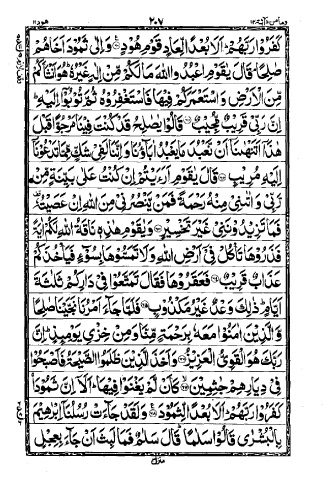 هود ١١ ٢٠٧ وما من دآبة ١٢
كَفَرُوْا رَبَّهُمْ اَلَا بُعْدًا لِّعَادٍ قَوْمِ هُوْدٍ وَاِلٰى ثَمُوْدَ اَخَاهُمْ
صٰلِحًا قَالَ يٰقَوْمِ اعْبُدُوا اللّٰهَ مَا لَكُمْ مِّنْ اِلٰهٍ غَيْرُهٗ هُوَ اَنْشَاَكُمْ
مِّنَ الْاَرْضِ وَاسْتَعْمَرَكُمْ فِيْهَا فَاسْتَغْفِرُوْهُ ثُمَّ تُوْبُوْٓا اِلَيْهِ
اِنَّ رَبِّيْ قَرِيْبٌ مُّجِيْبٌ قَالُوْا يٰصٰلِحُ قَدْ كُنْتَ فِيْنَا مَرْجُوًّا قَبْلَ
هٰذَآ اَتَنْهٰىنَآ اَنْ نَّعْبُدَ مَا يَعْبُدُ اٰبَآؤُنَا وَاِنَّنَا لَفِيْ شَكٍّ مِّمَّا تَدْعُوْنَآ
اِلَيْهِ مُرِيْبٍ قَالَ يٰقَوْمِ اَرَءَيْتُمْ اِنْ كُنْتُ عَلٰى بَيِّنَةٍ مِّنْ
رَّبِّيْ وَاٰتٰىنِيْ مِنْهُ رَحْمَةً فَمَنْ يَّنْصُرُنِيْ مِنَ اللّٰهِ اِنْ عَصَيْتُهٗ
فَمَا تَزِيْدُوْنَنِيْ غَيْرَ تَخْسِيْرٍ وَيٰقَوْمِ هٰذِهٖ نَاقَةُ اللّٰهِ لَكُمْ اٰيَةً
فَذَرُوْهَا تَاْكُلْ فِيْٓ اَرْضِ اللّٰهِ وَلَا تَمَسُّوْهَا بِسُوْٓءٍ فَيَاْخُذَكُمْ
عَذَابٌ قَرِيْبٌ فَعَقَرُوْهَا فَقَالَ تَمَتَّعُوْا فِيْ دَارِكُمْ ثَلٰثَةَ
اَيَّامٍ ذٰلِكَ وَعْدٌ غَيْرُ مَكْذُوْبٍ فَلَمَّا جَآءَ اَمْرُنَا نَجَّيْنَا صٰلِحًا
وَّالَّذِيْنَ اٰمَنُوْا مَعَهٗ بِرَحْمَةٍ مِّنَّا وَمِنْ خِزْيِ يَوْمِئِذٍ اِنَّ
رَبَّكَ هُوَ الْقَوِيُّ الْعَزِيْزُ وَاَخَذَ الَّذِيْنَ ظَلَمُوا الصَّيْحَةُ فَاَصْبَحُوْا
فِيْ دِيَارِهِمْ جٰثِمِيْنَ كَاَنْ لَّمْ يَغْنَوْا فِيْهَا اَلَآ اِنَّ ثَمُوْدَا۟
كَفَرُوْا رَبَّهُمْ اَلَا بُعْدًا لِّثَمُوْدَ وَلَقَدْ جَآءَتْ رُسُلُنَآ اِبْرٰهِيْمَ
بِالْبُشْرٰى قَالُوْا سَلٰمًا قَالَ سَلٰمٌ فَمَا لَبِثَ اَنْ جَآءَ بِعِجْلٍ